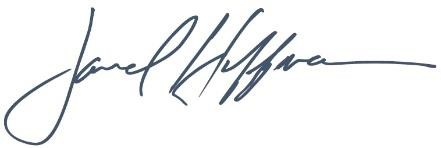 Jared Huffman